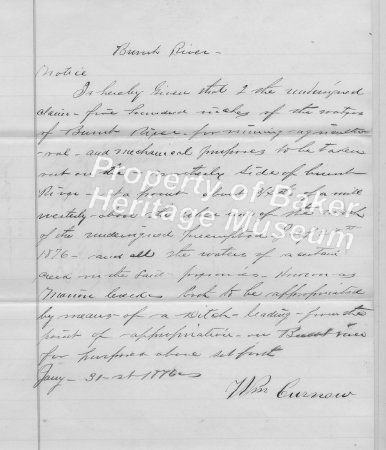 Burnt River -
Notice
Is hereby Given that I the undersigned
claim - five hundred inches of the waters
of Burnt River - for mining - agricultu
-ral - and mechanical purposes to be taken
out on the westerly side of burnt
River - at a point about of a mile
westerly - above the of the
of the undersigned
1876 - and all the waters of a certain
creek in the Said - premises - Known as
to be appropriated
by means of a Ditch - leading - from the
point of appropriation - on Burnt river
for purposes above set forth
Jany - 31 - st 1876
Wm Curnow
Property of Baker
Heritage Museum